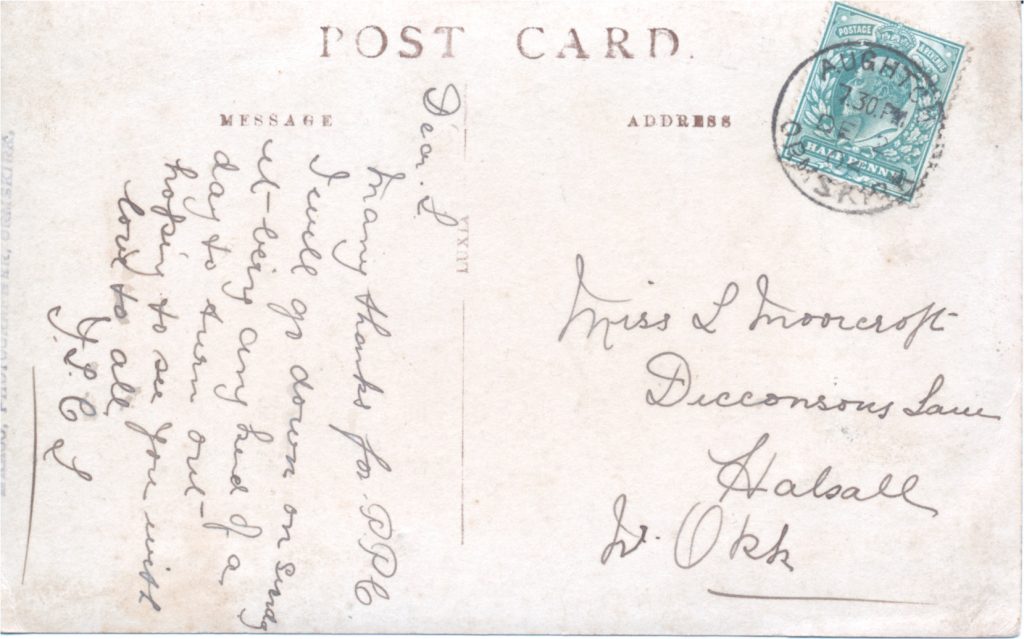 POST CARD.
MESSAGE
ADDRESS
POSTAGE
HALF PENNY
AUGHTON
7.30 PM
DE
ORMSKIRK
LUXIA
Dear L
Many thanks for PPC
I will go down on Sundy
it-being any kind of a
day to turn out-
hoping to see you with
love to all
Miss L Moorcroft
Dicconsons Lane
Halsall
Nr. Okk